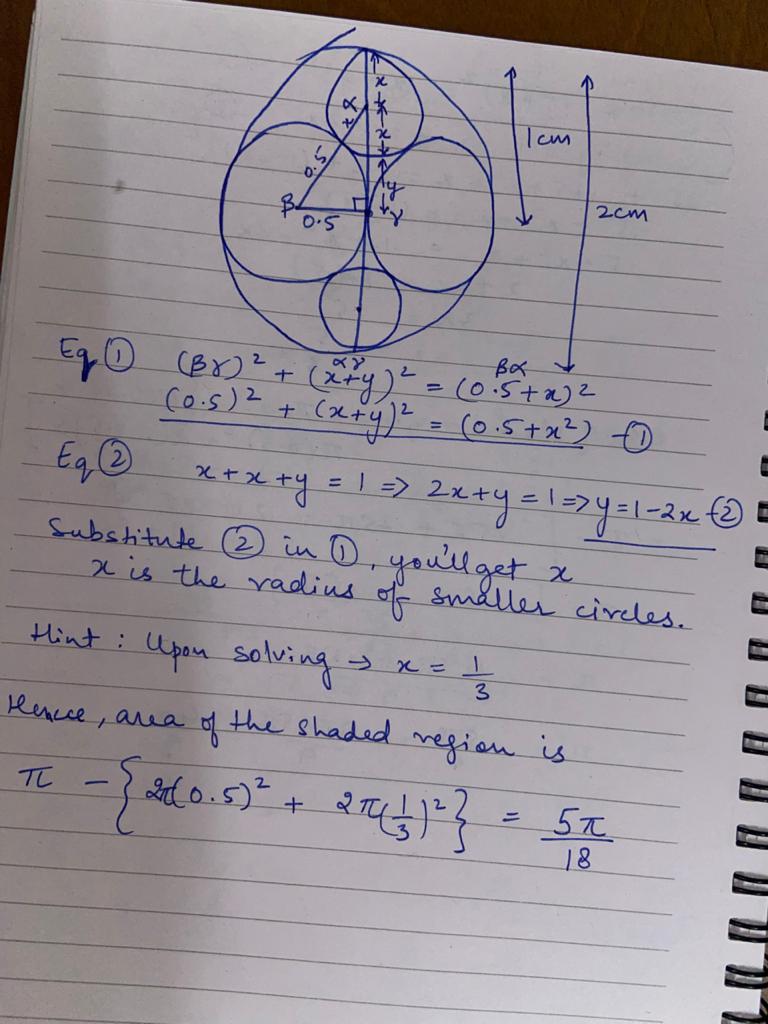 x
α
x
x
x
0.5
y
β
0.5
γ
1cm
2cm
Eq ① (βγ)² + (x+y)² = (0.5+x)²
αγ
βα
(0.5)² + (x+y)² = (0.5+x²) -①
Eq ② x+x+y = 1 => 2x+y = 1 => y=1-2x -②
Substitute ② in ①, you'll get x
x is the radius of smaller circles.
Hint : Upon solving → x = 1/3
Hence, area of the shaded region is
π - {2π(0.5)² + 2π(1/3)²} = 5π/18